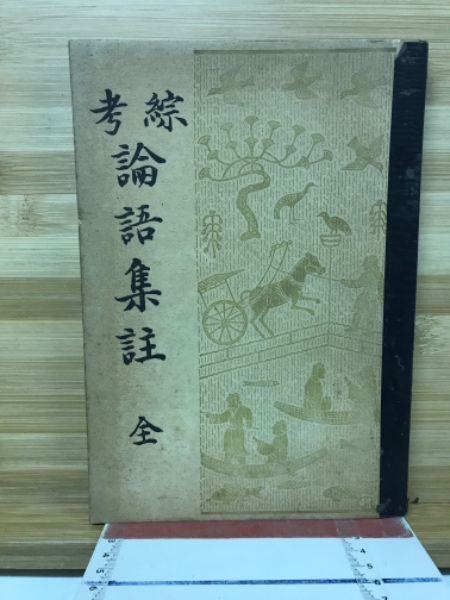 綜考
論語集註
全